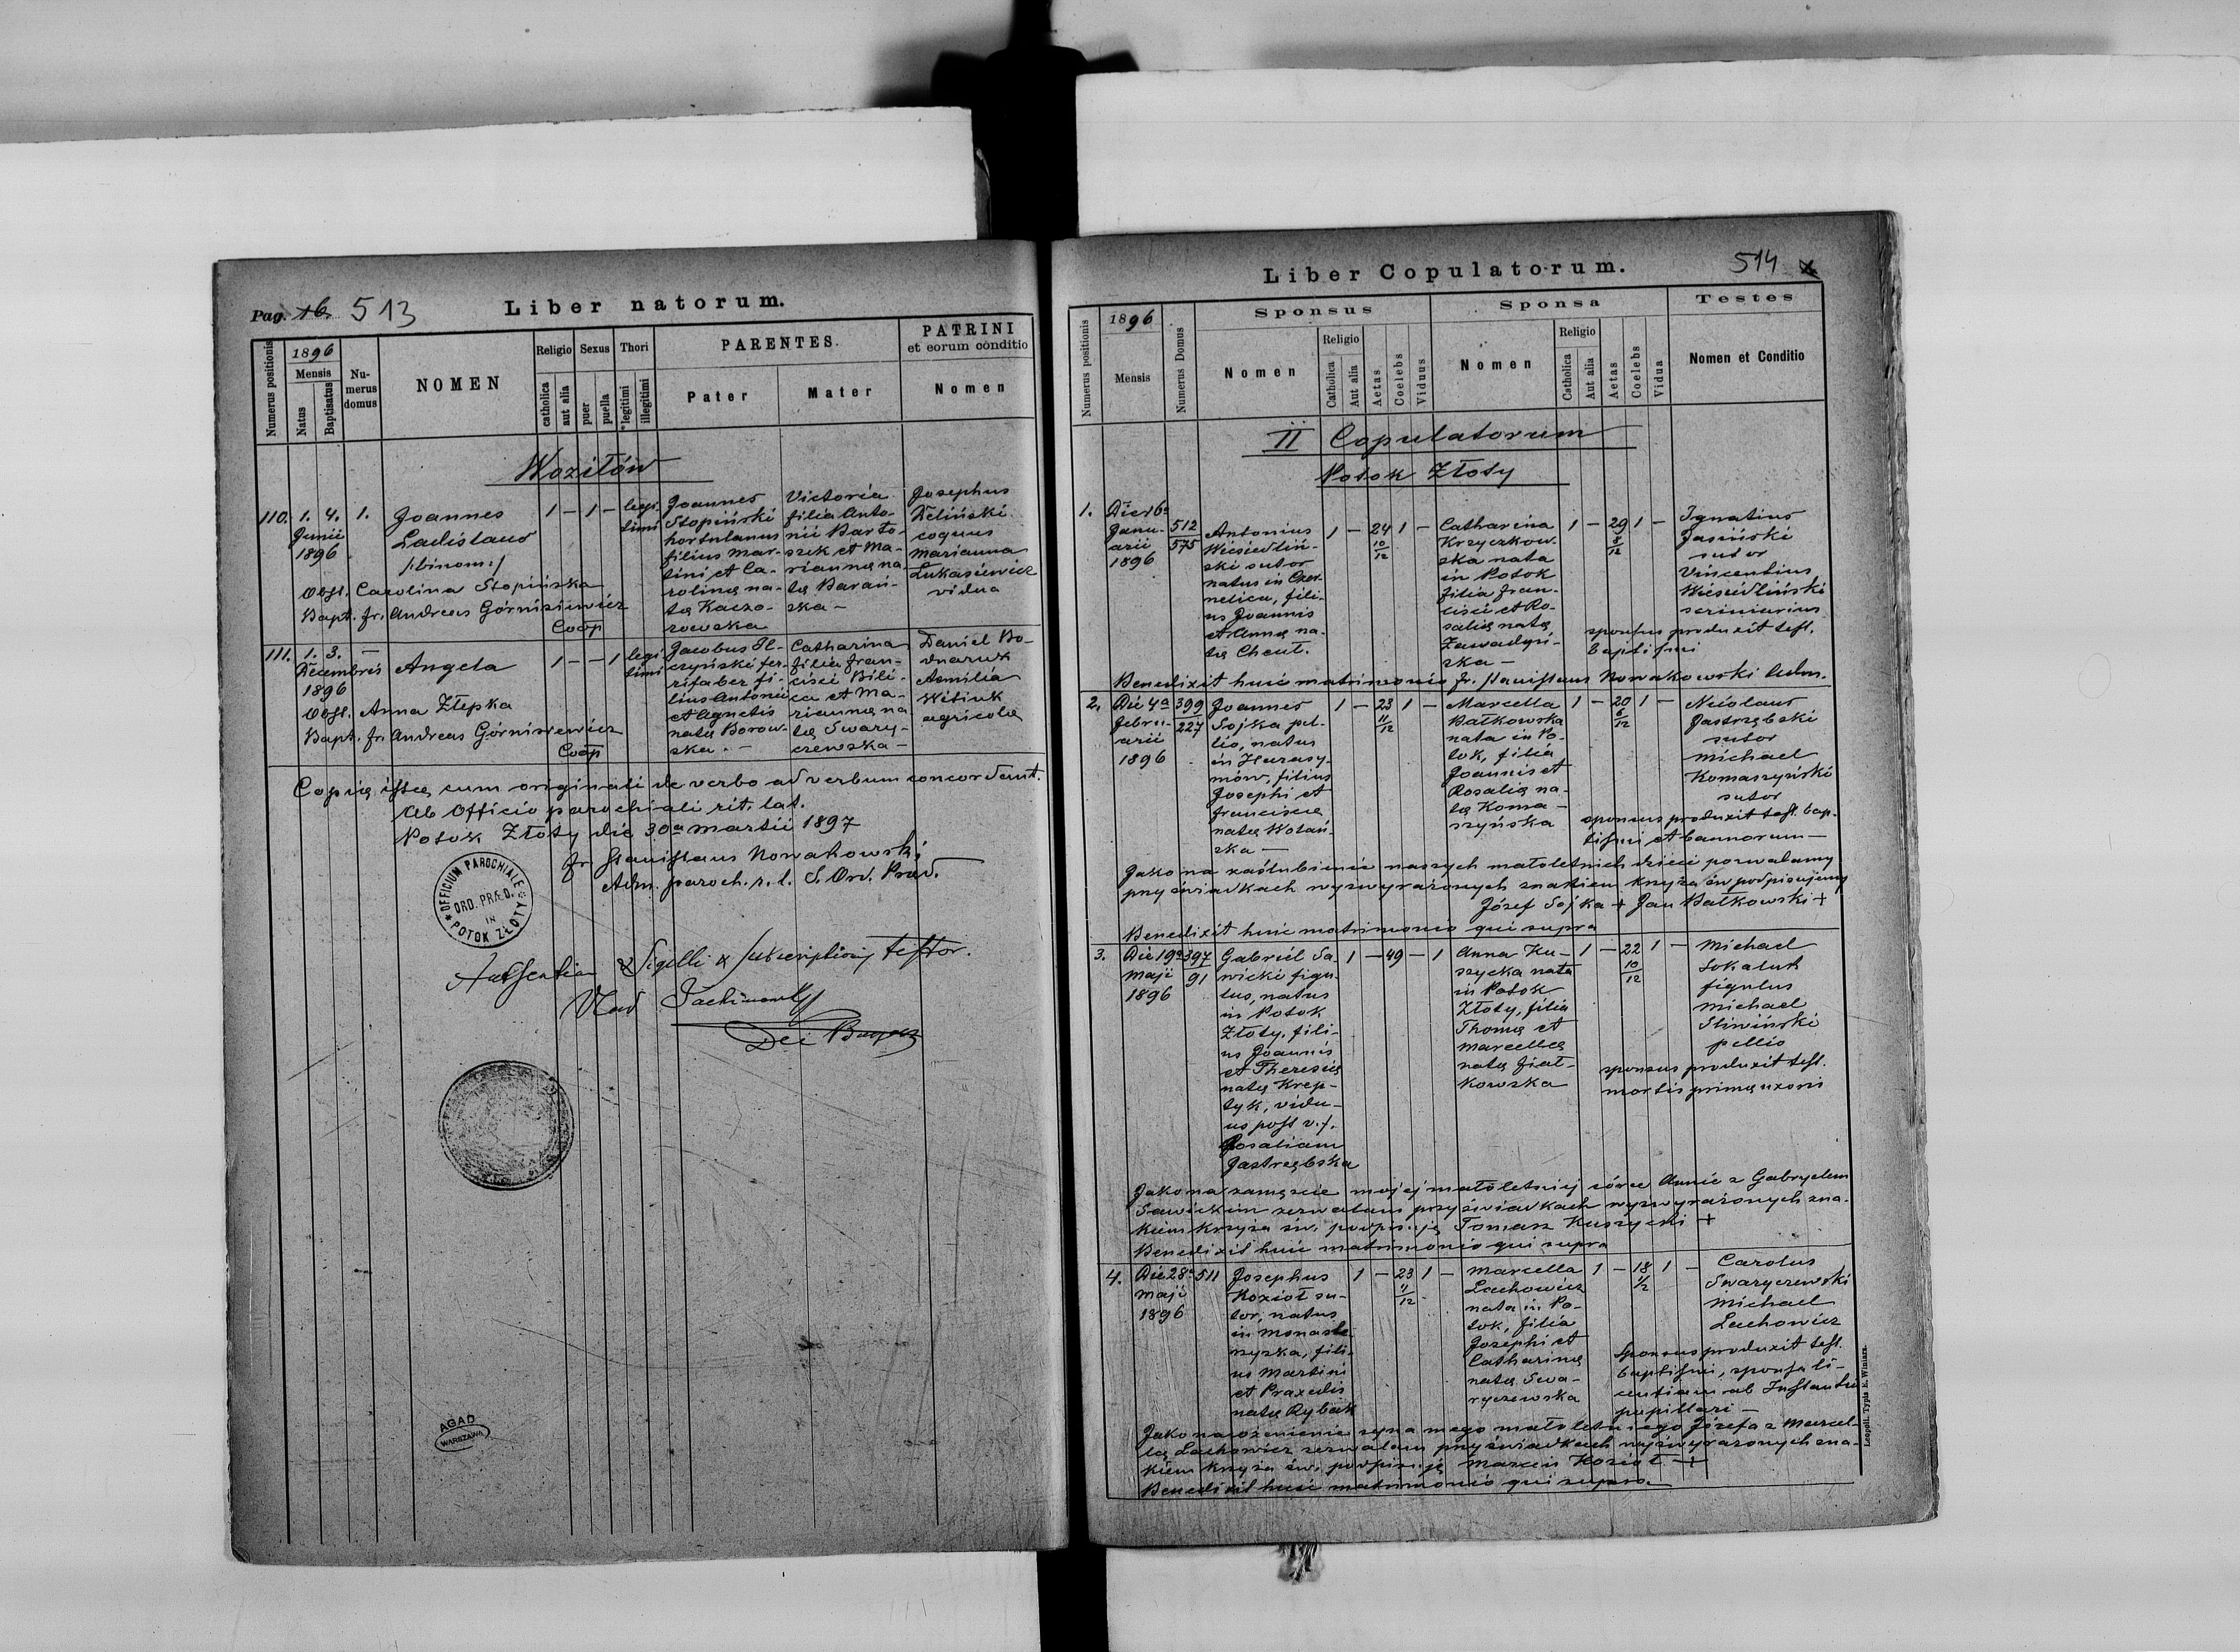 Pag. 16. 513
Liber natorum.
Numerus positionis
1896
Mensis
Natus
Baptisatus
Nu-
merus
domus
NOMEN
Religio
catholica
aut alia
Sexus
puer
puella
Thori
legitimi
illegitimi
PARENTES.
Pater
Mater
PATRINI
et eorum conditio
Nomen
Woziłów
110. 1. 4. 1.
Junii
1896
Joannes
Ladislaus
/:binom:/
1 – 1 – legi
timi
Joannes
Stopiński
hortulanus
filius Mar-
tini et Ca-
rolinę na-
tę Kaczo-
rowska
Victoria
filia Anto-
nii Barto-
szek et Ma-
riannę na-
tę Barań-
ska –
Josephus
Zieliński
coquus
Marianna
Łukasiewicz
vidua
Obst. Carolina Stopińska
Bapt. fr. Andreas Górnisiewicz
Coop
111. 1. 3. –
Decembris
1896
Angela
1 – – 1 legi
timi
Jacobus Il-
czyński fer-
rifaber fi-
lius Antonii
et Agnetis
natę Borow-
ska. –
Catharina
filia Fran-
cisci Bili-
ca et Ma-
riannę na
tę Swary-
czewska –
Daniel Bo-
dnaruk
Aemilia
Witiuk
agricolę
Obst. Anna Zlepka
Bapt. fr. Andreas Górnisiewicz
Coop
Copię istę cum originali de verbo ad verbum concordant.
Ab Officio parochiali rit. lat.
Potok Złoty die 30a Martii 1897
fr. Stanislaus Nowakowski
Adm. paroch. r. l. S. Ord. Præd.
OFFICIUM PAROCHIALE
ORD. PRÆD.
IN
POTOK ZŁOTY
Sigilli & subscriptionis testor.
AGAD
WARSZAWA
Liber Copulatorum.
514
Numerus positionis
1896
Mensis
Numerus Domus
Sponsus
Nomen
Religio
Catholica
Aut alia
Aetas
Coelebs
Viduus
Sponsa
Nomen
Religio
Catholica
Aut alia
Aetas
Coelebs
Vidua
Testes
Nomen et Conditio
II Copulatorum
Potok Złoty
1. Die 16a
Janu-
arii
1896
512
575
Antonius
Wisiedliń-
ski sutor
natus in Czer-
nelica, fili-
us Joannis
et Annę na-
tę Cheut.
1 – 24 1 –
10
12
Catharina
Krzyczkow-
ska nata
in Potok
filia Fran-
cisci et Ro-
salię natę
Zawadyń-
ska –
1 – 29 1 –
8
12
Ignatius
Jasiński
sutor
Vincentius
Wisiedliński
scriniarius
sponsus produxit test.
baptismi
Benedixit huic matrimonio fr. Stanislaus Nowakowski Adm.
2. Die 4a
Febru-
arii
1896
399
227
Joannes
Sojka pel-
lio, natus
in Harasy-
mów, filius
Josephi et
Franciscę
natę Wolań-
ska –
1 – 23 1 –
11
12
Marcella
Bałkowska
nata in Po-
tok, filia
Joannis et
Rosalię na-
tę Koma-
szyńska
1 – 20 1 –
6
12
Nicolaus
Jastrzębski
sutor
Michael
Komaszyński
sutor
sponsus produxit test. bap-
tismi et bannorum –
Jako na zaślubienie naszych małoletnich dzieci pozwalamy
przy świadkach wyżwyrażonych znakiem krzyża św. podpisujemy
Józef Sojka + Jan Bałkowski +
Benedixit huic matrimonio qui supra
3. Die 19a
Maji
1896
397
91
Gabriel Sa-
wicki figu-
lus, natus
in Potok
Złoty, fili-
us Joannis
et Theresię
natę Krep-
tyk, vidu-
us post v. f.
Rosaliam
Jastrzębska
1 – 49 – 1
Anna Ku-
szycka nata
in Potok
Złoty, filia
Thomę et
Marcellę
natę Fiał-
kowska
1 – 22 1 –
10
12
Michael
Sokaluk
figulus
Michael
Sliwiński
pellio
sponsus produxit test.
mortis primę uxoris
Jako na zamęście mojej małoletniej córce Annie z Gabryelem
Sawickim zezwalam przy świadkach wyżwyrażonych zna-
kiem krzyża św. podpisuję Tomasz Kuszycki +
Benedixit huic matrimonio qui supra
4. Die 28a
Maji
1896
511
Josephus
Kozioł su-
tor, natus
in Monaste-
rzyska, fili-
us Martini
et Praxedis
natę Rybak
1 – 23 1 –
11
12
Marcella
Lachowicz
nata in Po-
tok, filia
Josephi et
Catharinę
natę Swa-
ryczewska
1 – 18 1 –
1/2
Carolus
Swaryczewski
Michael
Lachowicz
Sponsus produxit test.
baptismi, sponsa li-
centiam ab Instantia
pupillari –
Jako na ożenienie syna mego małoletniego Józefa z Marcel-
lą Lachowicz zezwalam przy świadkach wyżwyrażonych zna-
kiem krzyża św. podpisuję Marcin Kozioł +
Benedixit huic matrimonio qui supra.
Leopoli. Typis E. Winiarz.